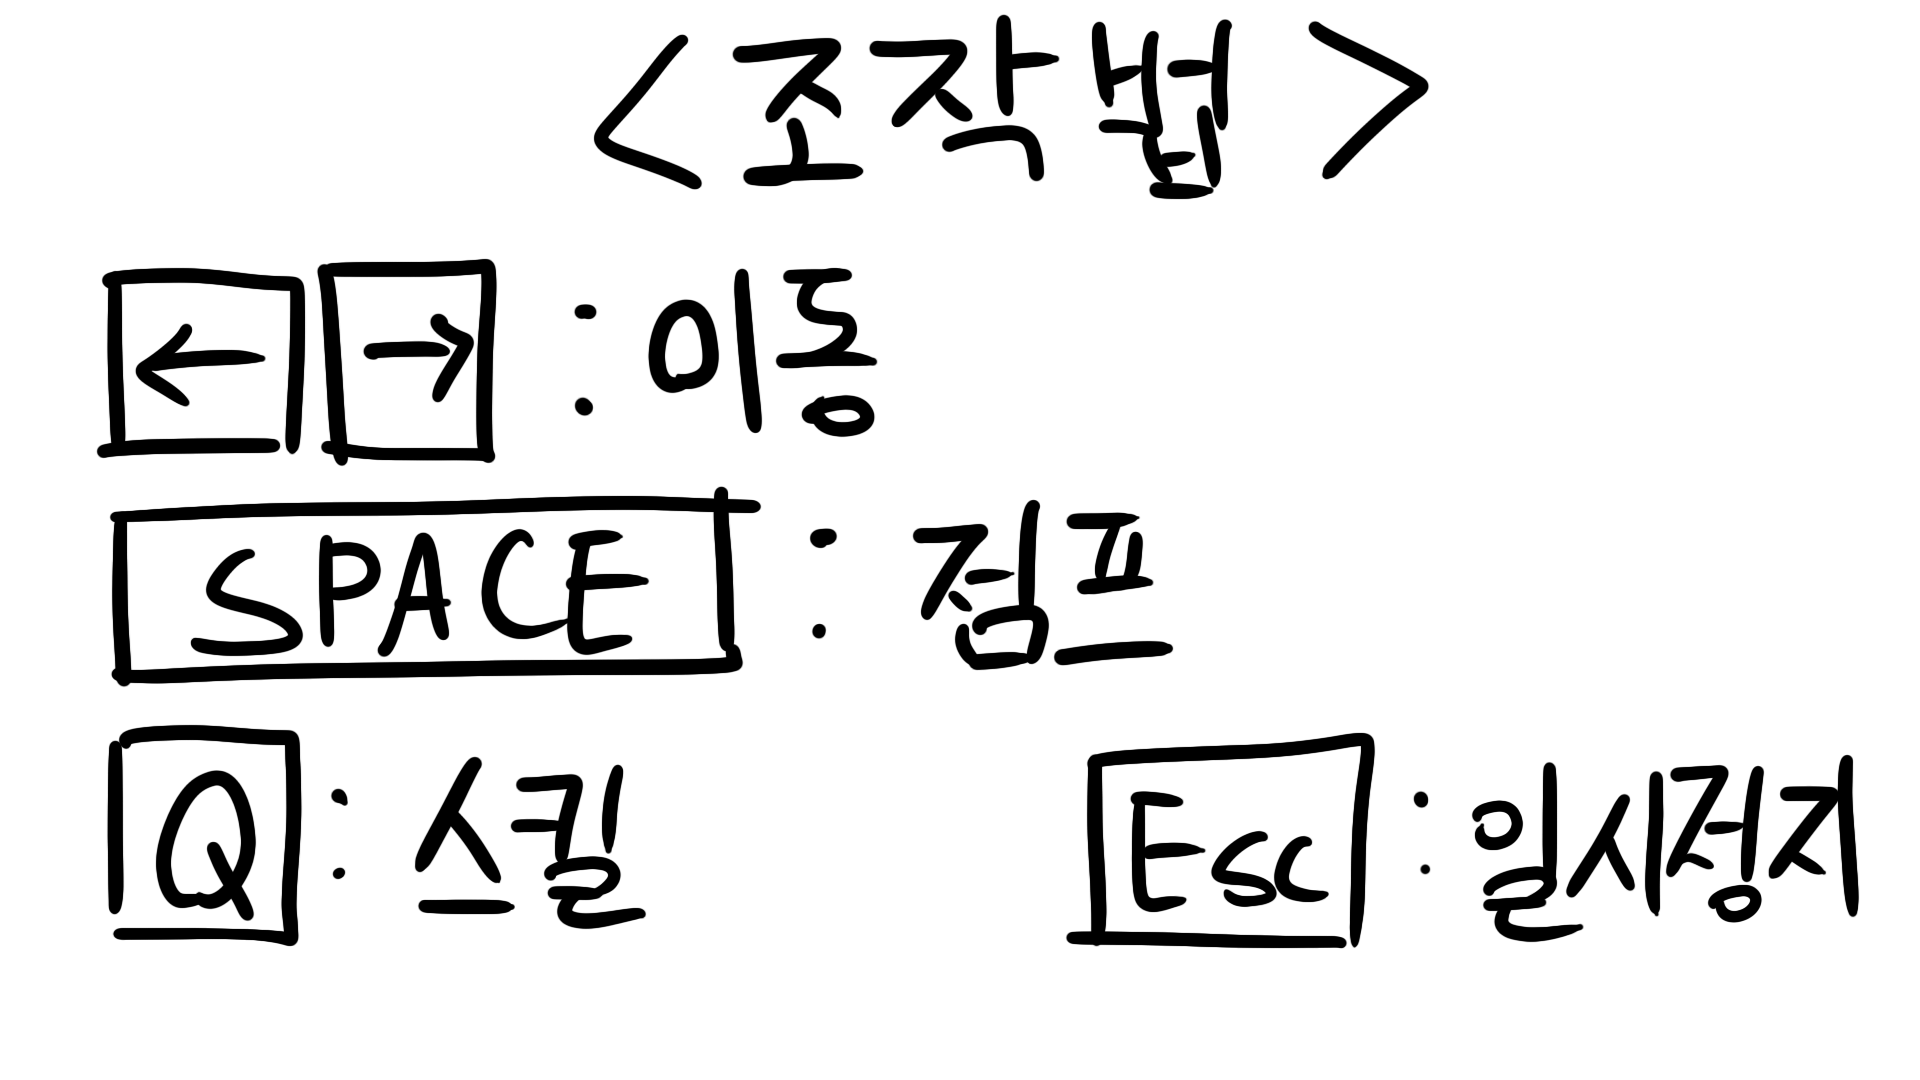 <조작법>
← → : 이동
SPACE : 점프
Q : 스킬 Esc : 일시정지